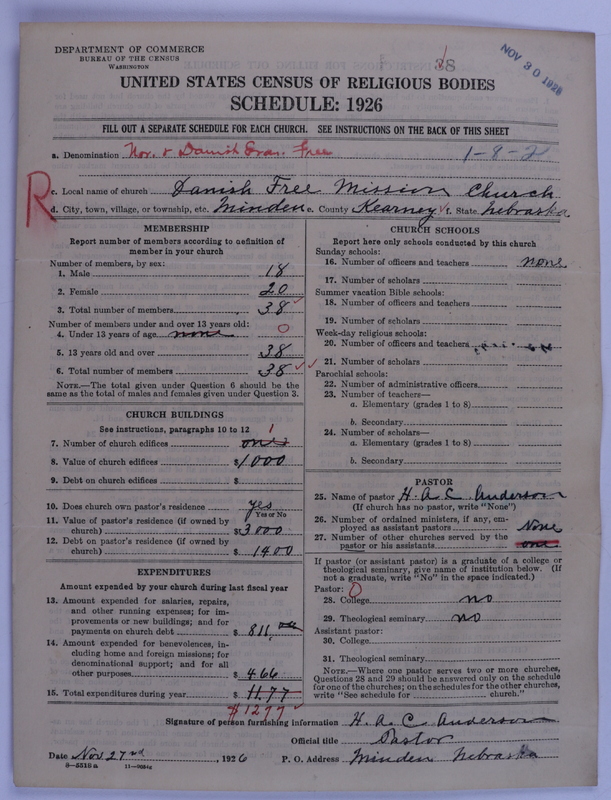 DEPARTMENT OF COMMERCE
BUREAU OF THE CENSUS
WASHINGTON
38
NOV 30 1926
UNITED STATES CENSUS OF RELIGIOUS BODIES
SCHEDULE: 1926
FILL OUT A SEPARATE SCHEDULE FOR EACH CHURCH. SEE INSTRUCTIONS ON THE BACK OF THIS SHEET
a. Denomination Nor. & Danish Evan. Free 1-8-2
R
c. Local name of church Danish Free Mission Church
d. City, town, village, or township, etc. Minden e. County Kearney f. State Nebraska
MEMBERSHIP
Report number of members according to definition of
member in your church
Number of members, by sex:
1. Male 18
2. Female 20
3. Total number of members 38
Number of members under and over 13 years old:
4. Under 13 years of age none 0
5. 13 years old and over 38
6. Total number of members 38
NOTE.—The total given under Question 6 should be the
same as the total of males and females given under Question 3.
CHURCH BUILDINGS
See instructions, paragraphs 10 to 12
7. Number of church edifices one 1
8. Value of church edifices $1000
9. Debt on church edifices $
10. Does church own pastor's residence yes
Yes or No
11. Value of pastor's residence (if owned by
church) $3000
12. Debt on pastor's residence (if owned by
church) $ 1400
EXPENDITURES
Amount expended by your church during last fiscal year
13. Amount expended for salaries, repairs,
and other running expenses; for im-
provements or new buildings; and for
payments on church debt $ 811
14. Amount expended for benevolences, in-
cluding home and foreign missions; for
denominational support; and for all
other purposes $ 466
15. Total expenditures during year $ 1177
$1277
CHURCH SCHOOLS
Report here only schools conducted by this church
Sunday schools:
16. Number of officers and teachers none
17. Number of scholars
Summer vacation Bible schools:
18. Number of officers and teachers
19. Number of scholars
Week-day religious schools:
20. Number of officers and teachers
21. Number of scholars
Parochial schools:
22. Number of administrative officers
23. Number of teachers—
a. Elementary (grades 1 to 8)
b. Secondary
24. Number of scholars—
a. Elementary (grades 1 to 8)
b. Secondary
PASTOR
25. Name of pastor H. A. C. Anderson
(If church has no pastor, write "None")
26. Number of ordained ministers, if any, em-
ployed as assistant pastors None
27. Number of other churches served by the
pastor or his assistants one
If pastor (or assistant pastor) is a graduate of a college or
theological seminary, give name of institution below. (If
not a graduate, write "No" in the space indicated.)
Pastor: 0
28. College no
29. Theological seminary no
Assistant pastor:
30. College
31. Theological seminary
NOTE.—Where one pastor serves two or more churches,
Questions 28 and 29 should be answered only on the schedule
for one of the churches; on the schedules for the other churches,
write "See schedule for church."
Signature of person furnishing information H. A. C. Anderson
Official title Pastor
Date Nov 27nd, 1926 P. O. Address Minden Nebraska
8—5518a